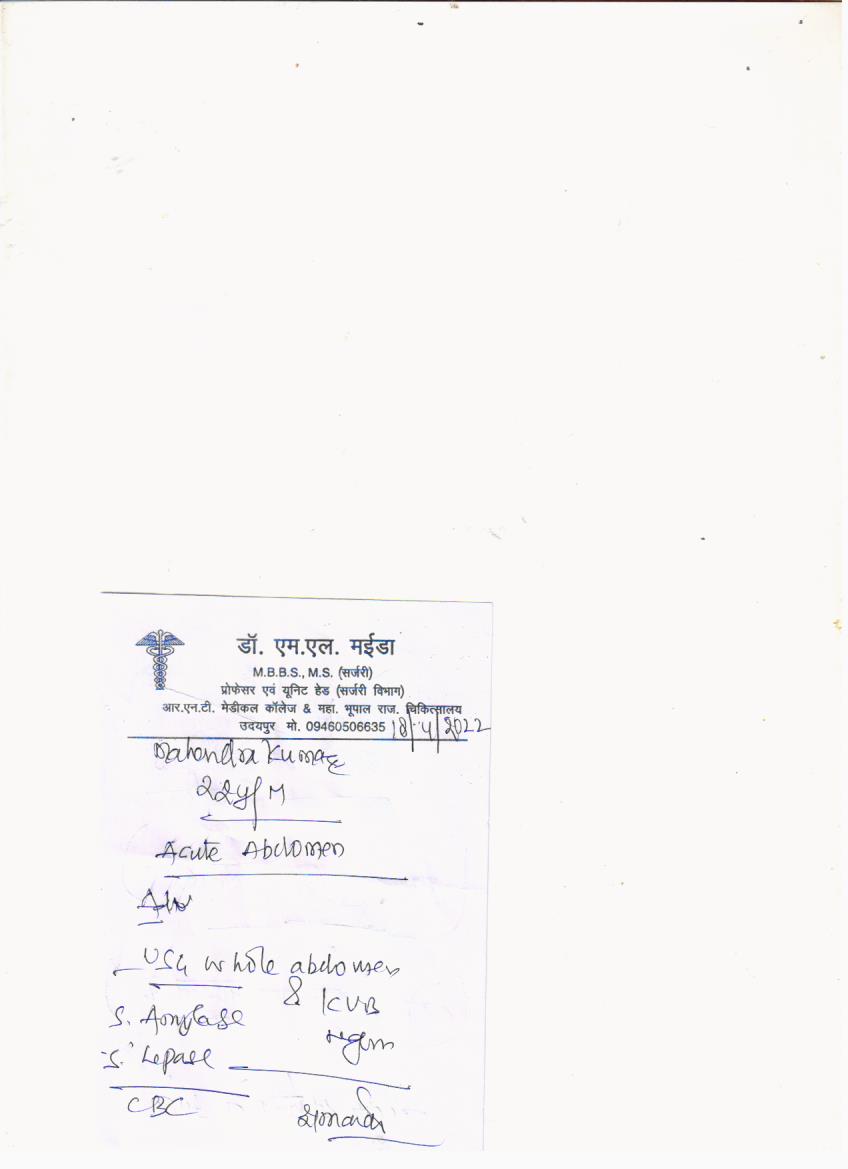 डॉ. एम.एल. मईडा
M.B.B.S., M.S. (सर्जरी)
प्रोफेसर एवं यूनिट हेड (सर्जरी विभाग)
आर.एन.टी. मेडीकल कॉलेज & महा. भूपाल राज. चिकित्सालय
उदयपुर मो. 09460506635 18/4/2022
Mahendra Kumar
22y/M
Acute Abdomen
USG whole abdomen
& KUB
S. Amylase
region
S. Lepase
CBC